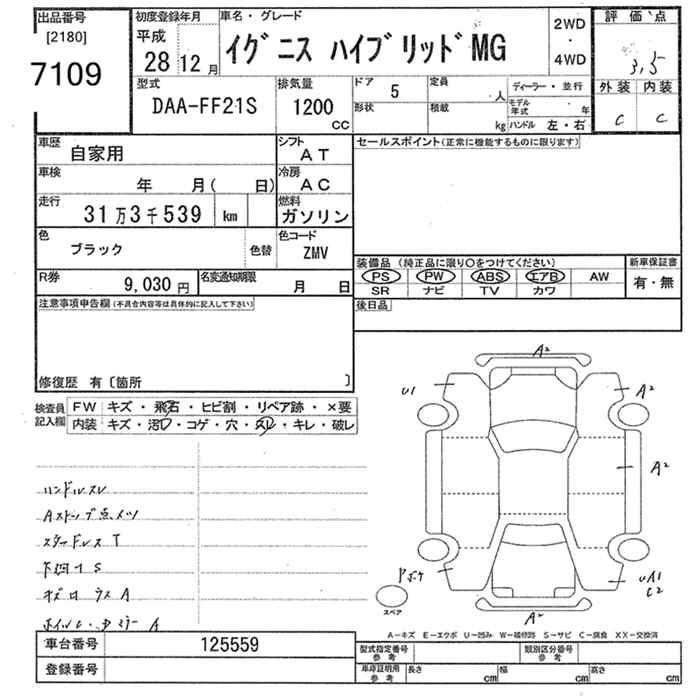 出品番号
[2180]
7109
初度登録年月
平成
28 12月
車名・グレード
イグニス ハイブリッド MG
2WD
・
4WD
評価点
3,5
外装 内装
C C
型式
DAA-FF21S
排気量
1200
CC
ドア 5
形状
定員 人
積載 kg
ディーラー・並行
モデル年式 年
ハンドル 左・右
車歴 自家用
シフト AT
車検 年 月( 日)
冷房 AC
走行 31万3千539 km
燃料 ガソリン
色 ブラック 色替
色コード ZMV
R券 9,030円
名変通知期限 月 日
セールスポイント(正常に機能するものに限ります)
装備品 (純正品に限り○をつけてください)
PS PW ABS エアB AW
SR ナビ TV カワ
新車保証書
有・無
後日品
注意事項申告欄(不具合内容等は具体的に記入して下さい)
修復歴 有〔箇所 〕
検査員記入欄
FW キズ・飛石・ヒビ割・リペア跡・×要
内装 キズ・汚レ・コゲ・穴・スレ・キレ・破レ
ハンドルスレ
スタッドレスT
下廻りS
A2
U1
A2
A2
UA1
C2
A2
スペア
A－キズ E－エクボ U－凹み W－補修跡 S－サビ C－腐食 XX－交換済
車台番号 125559
登録番号
型式指定番号 参考
類別区分番号 参考
車庫証明用 参考 長さ cm 幅 cm 高さ cm